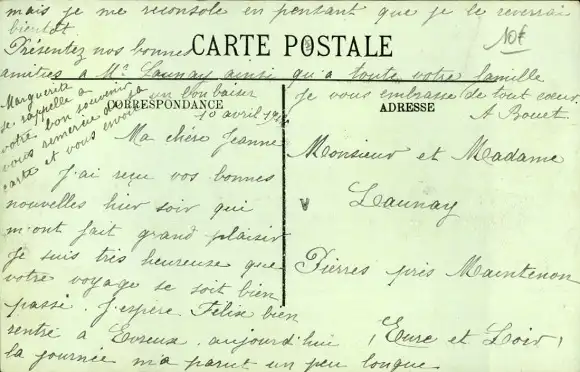 CARTE POSTALE
10€
CORRESPONDANCE
ADRESSE
10 avril
Ma chère Jeanne
J'ai reçu vos bonnes
nouvelles hier soir qui
m'ont fait grand plaisir
Je suis très heureuse que
votre voyage se soit bien
passé. J'espère Félix bien
rentré à Evreux. aujourd'hui
la journée m'a parut un peu longue
mais je me reconsole en pensant que je le reverrai
bientot.
Présentez nos bonnes
amitiés à Mr Launay ainsi qu'à toute votre famille
Je vous embrasse de tout cœur
A Bouet
Marguerite
se rappelle à
votre bon souvenir
vous remercie de sa
carte et vous envoie
un bon baiser
Monsieur et Madame
Launay
Pierres près Maintenon
(Eure et Loir)